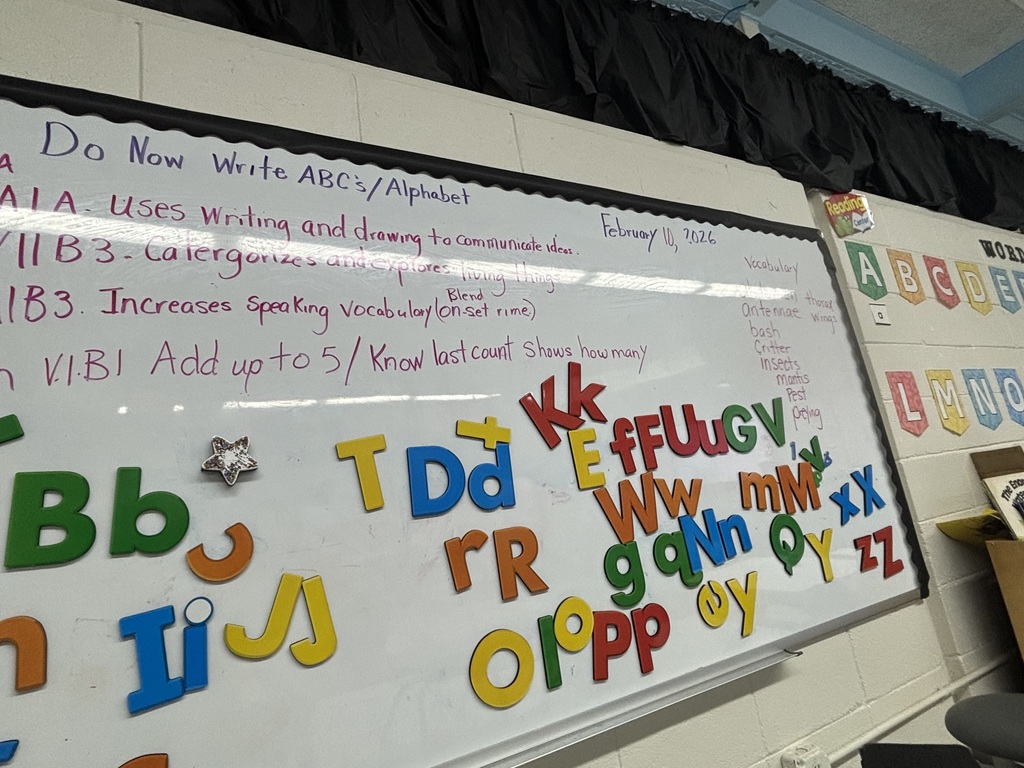 Do Now Write ABC's/Alphabet
A
A I A. Uses writing and drawing to communicate ideas.
February 10, 2026
VIIB3. Catergorizes and explores living things
IB3. Increases Speaking Vocabulary (on-set rime)
Blend
V.I.B1 Add up to 5/ Know last count shows how many
Vocabulary
thorax
antennae wings
bash
Critter
insects
mantis
Pest
preying
Reading
Center
WORD
A B C D E
L M N O
K k
T D d t E f F U u G V
B b W w m M v x X
r R g q N n Q y z Z
I i J J O l o P p y
n
The